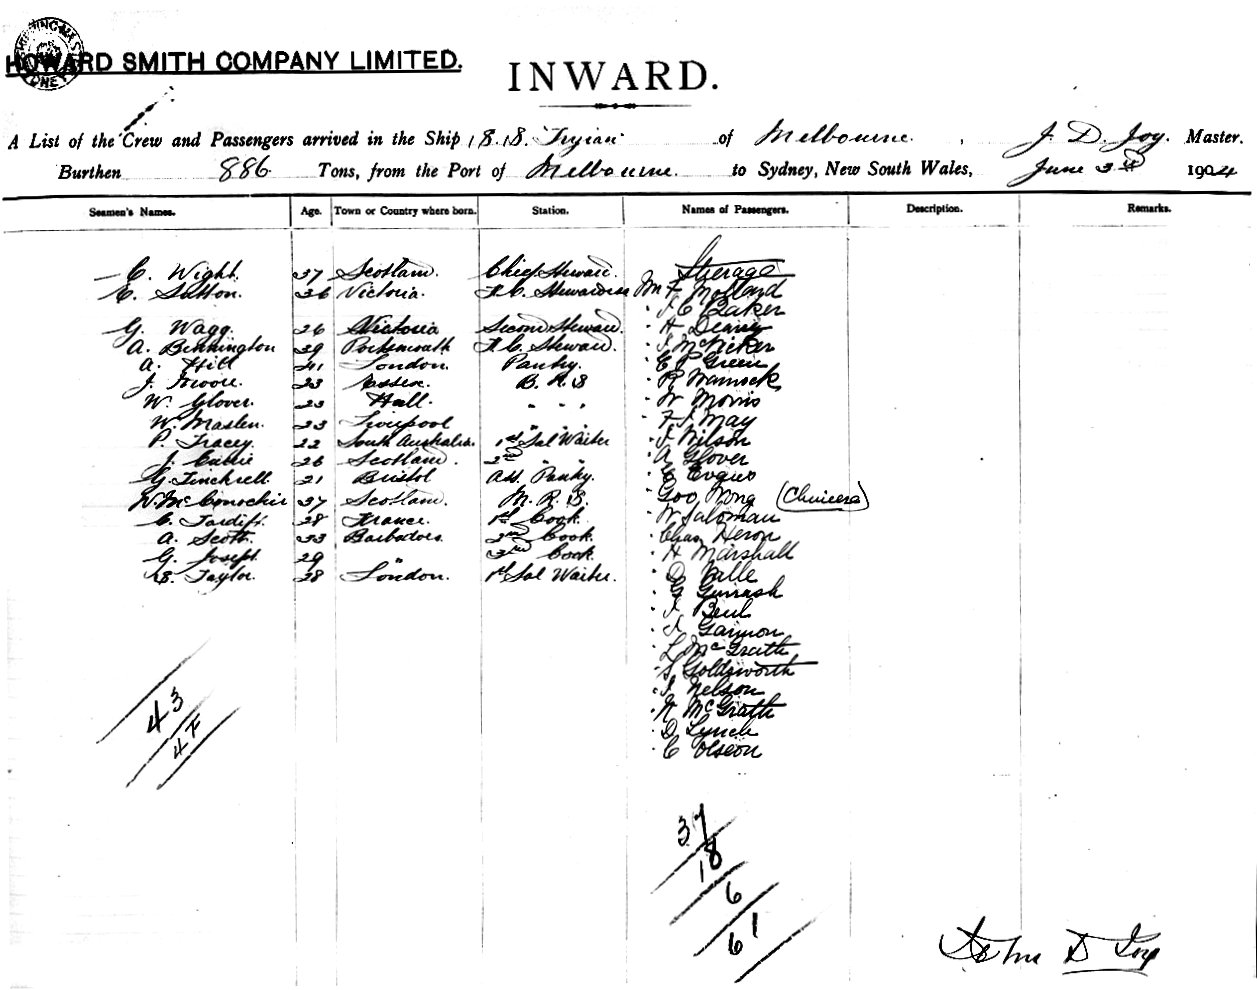 HOWARD SMITH COMPANY LIMITED.
INWARD.
A List of the Crew and Passengers arrived in the Ship S.S. Tyrian of Melbourne, J. D. Joy. Master.
Burthen 886 Tons, from the Port of Melbourne. to Sydney, New South Wales, June 3rd 1904
Seamen's Names. Age. Town or Country where born. Station. Names of Passengers. Description. Remarks.
Steerage
C. Wight. 37 Scotland. Chief Steward.
E. Sutton. 36 Victoria. F.C. Stewardess Mr F Holland
J C Baker
G. Wagg. 26 Victoria Second Steward. H Deary
A. Bennington 29 Portsmouth F.C. Steward. J McVicker
A. Hill 41 London. Pantry. E P Green
J. Moore. 23 Essex. B. R. S R Warnock
W. Glover. 23 Hull. " " " W Morris
W. Maslen. 23 Liverpool " " " F J May
P. Tracey. 22 South Australia. 1st Sal Waiter J Wilson
J. 26 Scotland. 2nd " " A Glover
G. Tinckrell. 21 Bristol Asst. Pantry. Evans
W. McConochie 37 Scotland. M. R. S. Goo Wong (Chinese)
C. Tardif. 28 France. 1st Cook. W Saloman
A. Scott. 33 Barbadoes. 2nd Cook. Chas Heron
G. Joseph. 29 " 3rd Cook. H Marshall
Taylor. 28 London. 1st Sal Waiter. D Valle
G
J
J Gannon
L McGrath
S Goldsworth
J Nelson
W McGrath
D Lynch
C Olseon
43
47
37
18
6
61
John D Joy